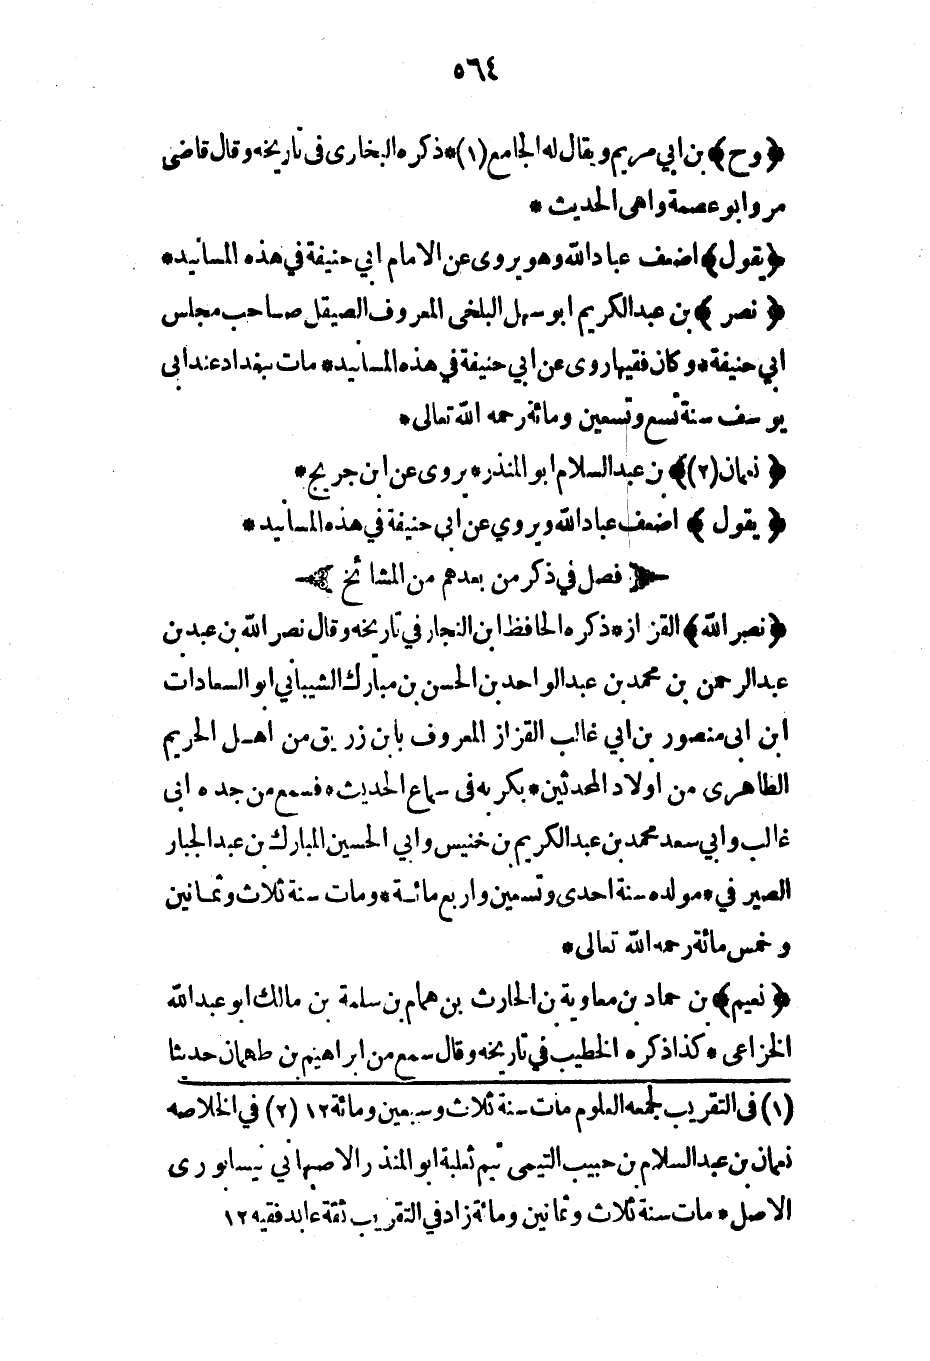 ٥٦٤
﴿وح﴾ بن ابي مريم ويقال له الجامع (١)* ذكره البخارى فى تاريخه وقال قاضى
مرو ابو عصمة واهى الحديث *
﴿يقول﴾ اضعف عباد الله وهو يروى عن الامام ابي حنيفة في هذه المسانيد*
﴿نصر﴾ بن عبد الكريم ابو سهل البلخى المعروف الصيقل صاحب مجلس
ابي حنيفة* وكان فقيها روى عن ابي حنيفة في هذه المسانيد* مات ببغداد عند ابى
يوسف سنة تسع وتسعين ومائة رحمه الله تعالى*
﴿نعمان (٢)﴾ بن عبد السلام ابو المنذر* يروى عن ابن جريج*
﴿يقول﴾ اضعف عباد الله ويروي عن ابي حنيفة في هذه المسانيد *
فصل في ذكر من بعدهم من المشائخ
﴿نصر الله﴾ القزاز* ذكره الحافظ ابن النجار في تاريخه وقال نصر الله بن عبد بن
عبد الرحمن بن محمد بن عبد الواحد بن الحسن بن مبارك الشيباني ابو السعادات
ابن ابى منصور بن ابي غالب القزاز المعروف بابن زريق من اهل الحريم
الظاهرى من اولاد المحدثين* بكر به فى سماع الحديث* فسمع من جده ابى
غالب وابي سعد محمد بن عبد الكريم بن خنيس وابي الحسين المبارك بن عبد الجبار
الصيرفي* مولده سنة احدى وتسعين واربع مائة* ومات سنة ثلاث وثمانين
وخمس مائة رحمه الله تعالى*
﴿نعيم﴾ بن حماد بن معاوية بن الحارث بن همام بن سلمة بن مالك ابو عبد الله
الخزاعى * كذا ذكره الخطيب في تاريخه وقال سمع من ابراهيم بن طهمان حديثا
(١) فى التقريب لجمعه العلوم مات سنة ثلاث وسبعين ومائة ١٢ (٢) في الخلاصه
نعمان بن عبد السلام بن حبيب التيمى تيم ثعلبة ابو المنذر الاصبهاني نيسابورى
الاصل* مات سنة ثلاث وثمانين ومائة زاد في التقريب ثقة عابد فقيه ١٢